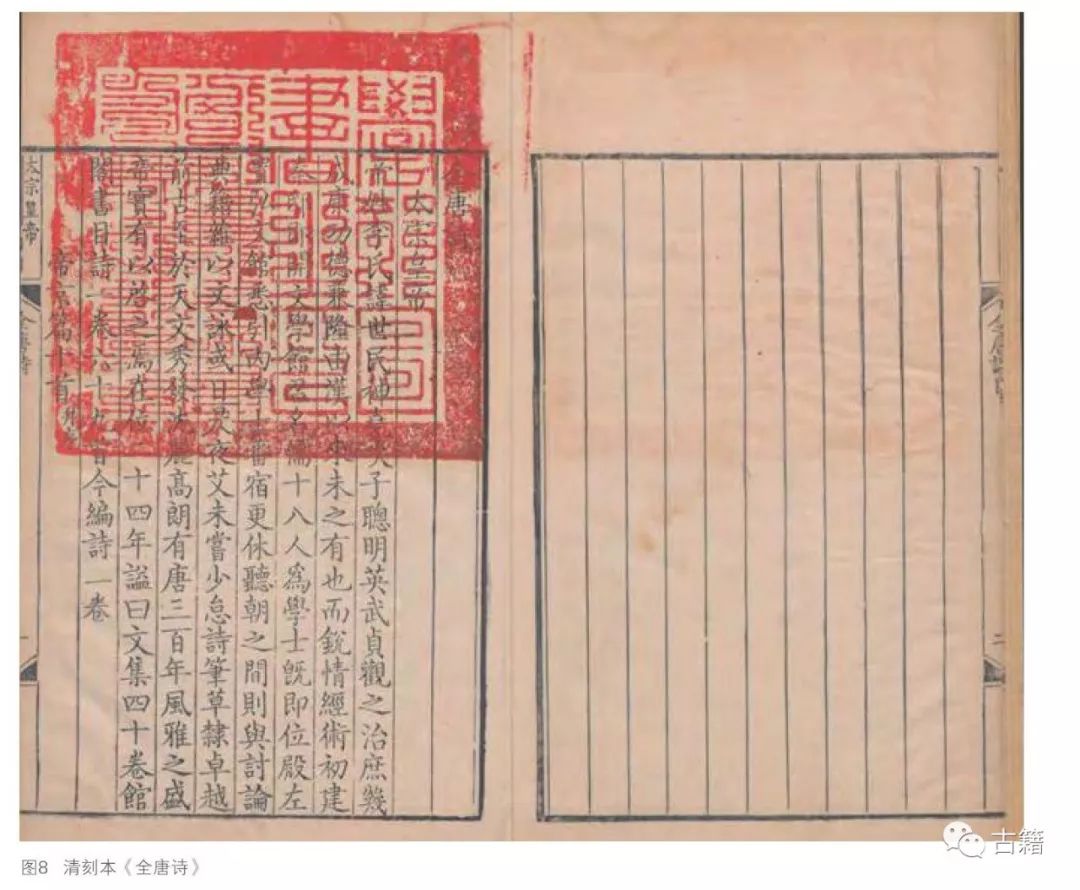 全唐詩
二
全唐詩
太宗皇帝
帝姓李氏諱世民神堯次子聰明英武貞觀之治庶幾
成康功德兼隆由漢以來未之有也而銳情經術初建
秦邸即開文學館召名儒十八人爲學士旣即位殿左
置弘文館悉引內學士番宿更休聽朝之間則與討論
典籍雜以文詠或日昃夜艾未嘗少怠詩筆草隸卓越
前古至於天文秀發沈麗高朗有唐三百年風雅之盛
帝實有以啓之焉在位十四年諡曰文集四十卷館
閣書目詩一卷六十九首今編詩一卷
帝京篇十首并序
太宗皇帝
全唐詩
一
古籍
图8 清刻本《全唐诗》